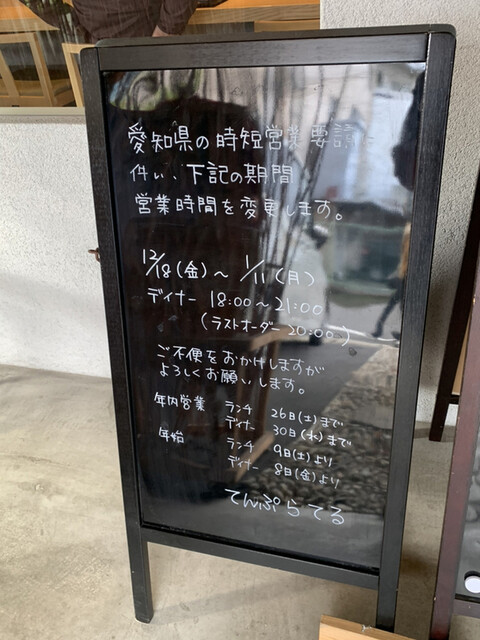 愛知県の時短営業要請に
伴い、下記の期間
営業時間を変更します。
12/18(金)～1/11(月)
ディナー 18:00～21:00
(ラストオーダー 20:00)
ご不便をおかけしますが
よろしくお願いします。
年内営業 ランチ 26日(土)まで
ディナー 30日(水)まで
年始 ランチ 9日(土)より
ディナー 8日(金)より
てんぷらてる